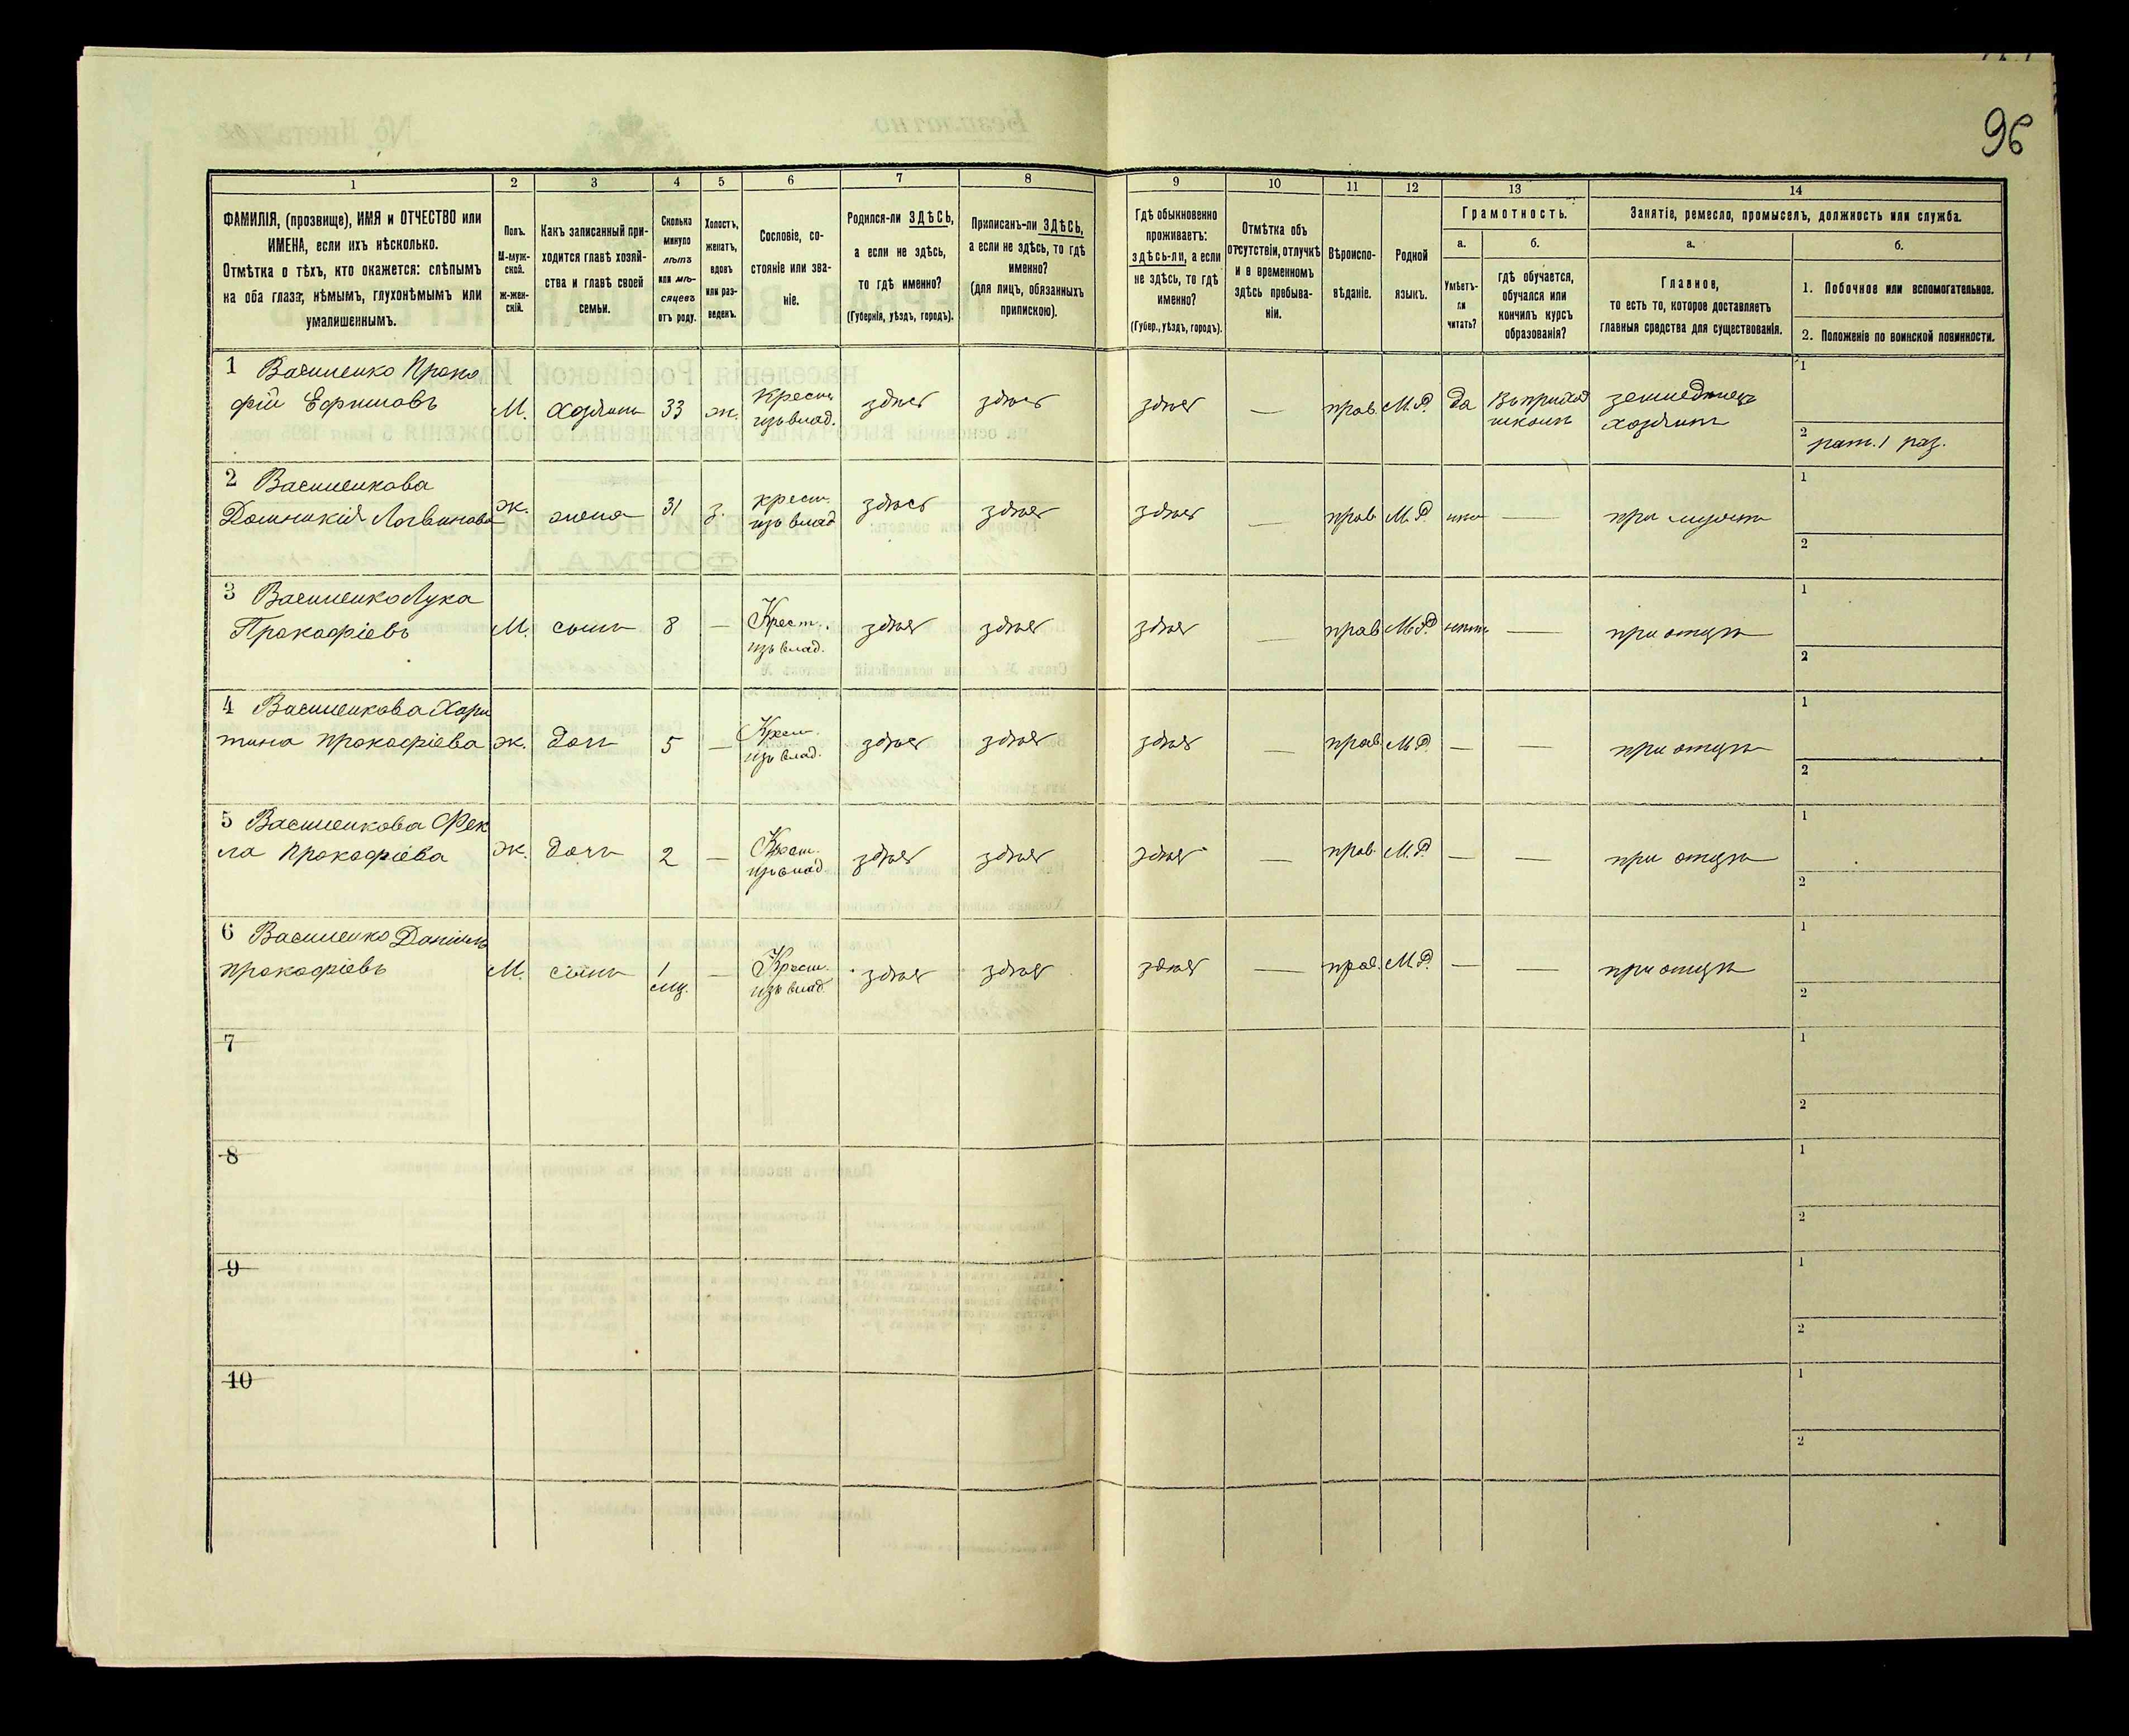 96
1 2 3 4 5 6 7 8 9 10 11 12 13 14
ФАМИЛІЯ, (прозвище), ИМЯ и ОТЧЕСТВО или
ИМЕНА, если ихъ нѣсколько.
Отмѣтка о тѣхъ, кто окажется: слѣпымъ
на оба глаза, нѣмымъ, глухонѣмымъ или
умалишеннымъ.
Полъ.
М-муж-
ской.
Ж-жен-
скій.
Какъ записанный при-
ходится главѣ хозяй-
ства и главѣ своей
семьи.
Сколько
минуло
лѣтъ
или мѣ-
сяцевъ
отъ роду.
Холостъ,
женатъ,
вдовъ
или раз-
веденъ.
Сословіе, со-
стояніе или зва-
ніе.
Родился-ли ЗДѢСЬ,
а если не здѣсь,
то гдѣ именно?
(Губернія, уѣздъ, городъ).
Приписанъ-ли ЗДѢСЬ,
а если не здѣсь, то гдѣ
именно?
(для лицъ, обязанныхъ
припискою).
Гдѣ обыкновенно
проживаетъ:
здѣсь-ли, а если
не здѣсь, то гдѣ
именно?
(Губер., уѣздъ, городъ).
Отмѣтка объ
отсутствіи, отлучкѣ
и о временномъ
здѣсь пребыва-
ніи.
Вѣроиспо-
вѣданіе.
Родной
языкъ.
Грамотность.
а.
Умѣетъ-
ли
читать?
б.
гдѣ обучается,
обучался или
кончилъ курсъ
образованія?
Занятіе, ремесло, промыселъ, должность или служба.
а.
Главное,
то есть то, которое доставляетъ
главныя средства для существованія.
б.
1. Побочное или вспомогательное.
2. Положеніе по воинской повинности.
1 Василенко Проко
фій Ефимовъ М. хозяинъ 33 ж. крестн. здѣсь здѣсь здѣсь — прав. М.Р. да Въ приход земледѣлецъ 1
изъ влад. школѣ хозяинъ
2 рат. 1 раз.
2 Василенкова
Домникія Логвинова ж. жена 31 з. крест. здѣсь здѣсь здѣсь — прав. М.Р. нѣтъ — при мужѣ 1
изъ влад.
2
3 Василенко Лука
Прокофіевъ М. сынъ 8 — Крест. здѣсь здѣсь здѣсь — прав. М.Р. нѣтъ — при отцѣ 1
изъ влад.
2
4 Василенкова Хари
тина Прокофіева ж. дочь 5 — Крест. здѣсь здѣсь здѣсь — прав. М.Р. — — при отцѣ 1
изъ влад.
2
5 Василенкова Фек
ла Прокофіева ж. дочь 2 — Крест. здѣсь здѣсь здѣсь — прав. М.Р. — — при отцѣ 1
изъ влад.
2
6 Василенко Даніилъ
Прокофіевъ М. сынъ 1 — Крест. здѣсь здѣсь здѣсь — прав. М.Р. — — при отцѣ 1
мц. изъ влад.
2
7 1
2
8 1
2
9 1
2
10 1
2